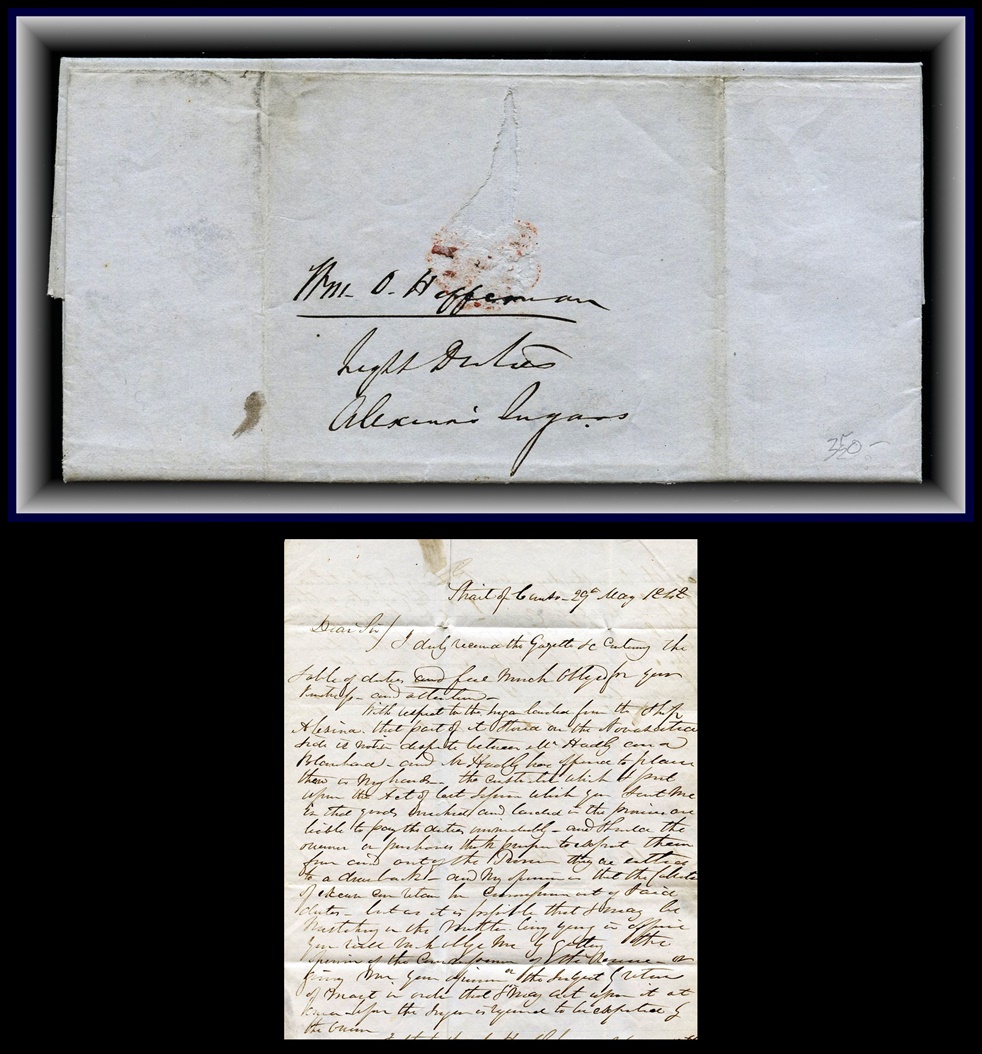 Wm. O. Heffernan
Light Duties
Alexina's Sugars
350-
Strait of Canso - 29th May 184
Dear Sir/ I duly received the Gazette &c Containing the
table of duties and feel Much Oblige for your
Kindness - and attention -
With respect to the Sugar landed from the Ship
Alexina that part of it Stored on the Novascotia
Side is in dispute between Mr Hadly and
Blanchard - and Mr Hadly has offered to place
them in My hands - the Construction which I put
upon the Act of last Session which you Sent Me
is that goods wrecked and landed in the province are
liable to pay the duties immediately - and Should the
owner or purchaser think proper to export them
from and out of the Province they are entitled
to a drawback - and My opinion is that the
of can retain in of said
duties - but as it is possible that I may be
Mistaken in the
you will Much oblige Me by getting the
opinion of the Commissioners of the Revenue or
giving Me your opinion on the Subject by return
of in order that I May act upon it at
before the Sugar is required to be exported by
the Owner